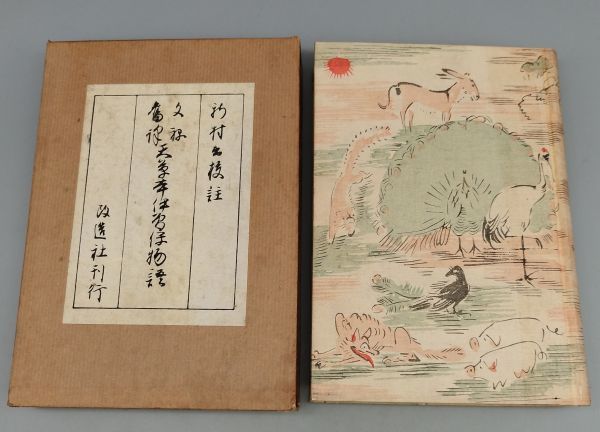 新村出校註
文禄
舊譯
天草本伊曽保物語
改造社刊行